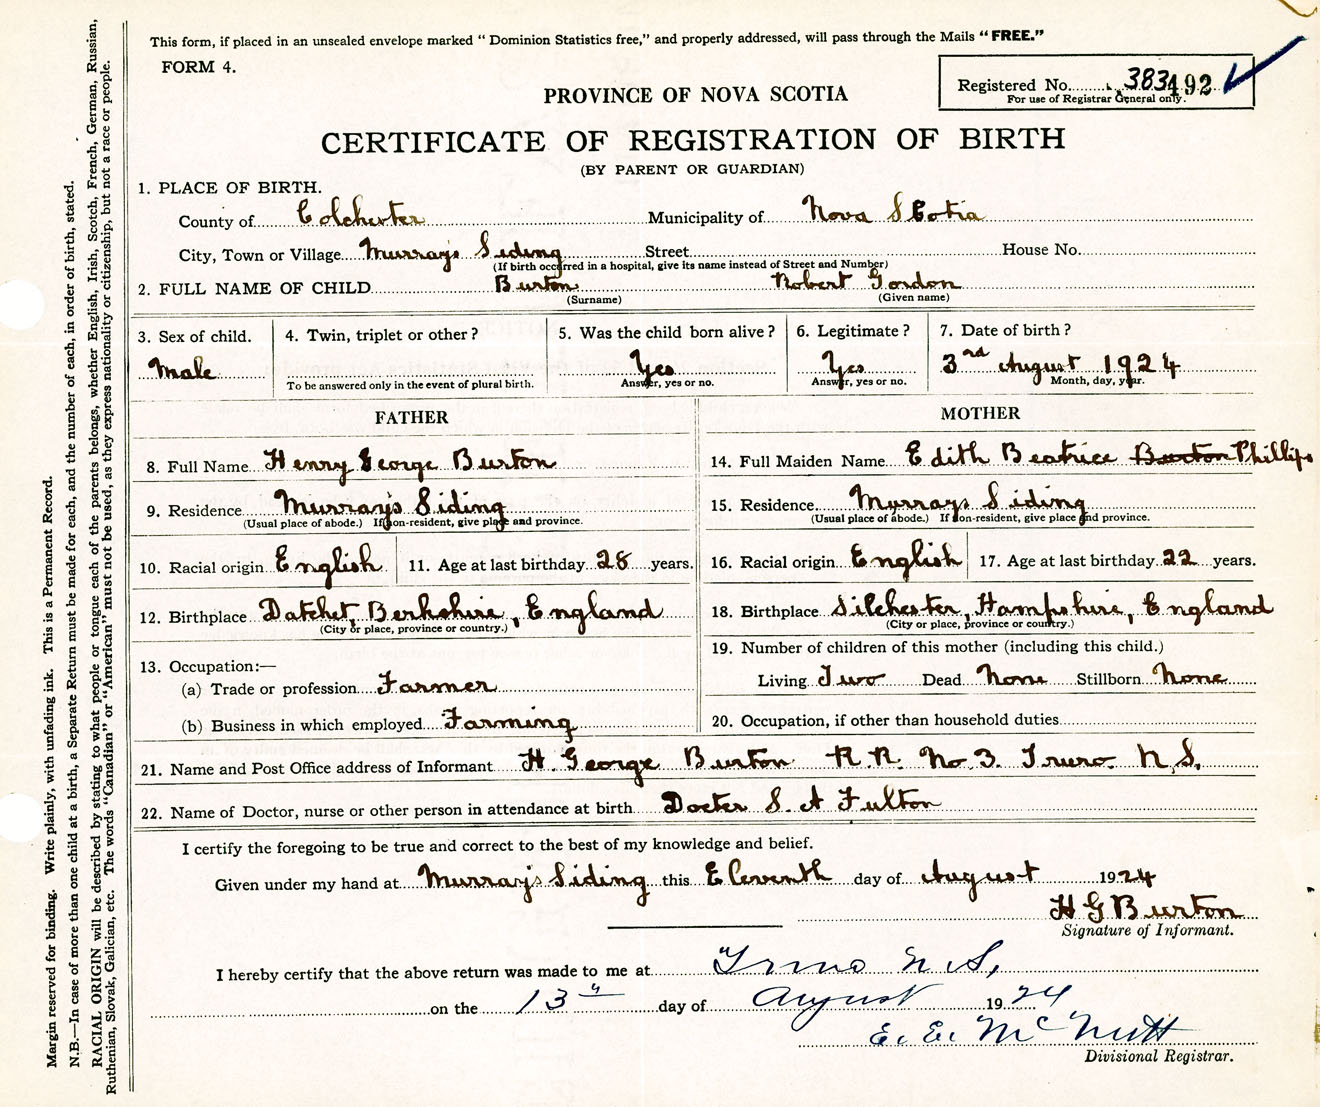 This form, if placed in an unsealed envelope marked "Dominion Statistics free," and properly addressed, will pass through the Mails "FREE."
FORM 4.
Registered No. 383492
For use of Registrar General only.
PROVINCE OF NOVA SCOTIA
CERTIFICATE OF REGISTRATION OF BIRTH
(BY PARENT OR GUARDIAN)
1. PLACE OF BIRTH.
County of Colchester Municipality of Nova Scotia
City, Town or Village Murray's Siding Street House No.
(If birth occurred in a hospital, give its name instead of Street and Number)
2. FULL NAME OF CHILD Burton Robert Gordon
(Surname) (Given name)
3. Sex of child. 4. Twin, triplet or other? 5. Was the child born alive? 6. Legitimate? 7. Date of birth?
Male Yes Yes 3rd August 1924
To be answered only in the event of plural birth. Answer, yes or no. Answer, yes or no. Month, day, year.
FATHER MOTHER
8. Full Name Henry George Burton 14. Full Maiden Name Edith Beatrice Burton Phillips
9. Residence Murray's Siding 15. Residence Murrays Siding
(Usual place of abode.) If non-resident, give place and province. (Usual place of abode.) If non-resident, give place and province.
10. Racial origin English 11. Age at last birthday 28 years. 16. Racial origin English 17. Age at last birthday 22 years.
12. Birthplace Datchet, Berkshire, England 18. Birthplace Silchester, Hampshire, England
(City or place, province or country.) (City or place, province or country.)
13. Occupation:— 19. Number of children of this mother (including this child.)
(a) Trade or profession Farmer Living Two Dead None Stillborn None
(b) Business in which employed Farming 20. Occupation, if other than household duties
21. Name and Post Office address of Informant H. George Burton R.R. No 3. Truro. N.S.
22. Name of Doctor, nurse or other person in attendance at birth Docter S. A Fulton
I certify the foregoing to be true and correct to the best of my knowledge and belief.
Given under my hand at Murray's Siding this Eleventh day of August 1924
H G Burton
Signature of Informant.
I hereby certify that the above return was made to me at Truro N.S,
on the 13th day of August 1924
E. E. McNutt
Divisional Registrar.
Margin reserved for binding. Write plainly, with unfading ink. This is a Permanent Record.
N.B.—In case of more than one child at a birth, a Separate Return must be made for each, and the number of each, in order of birth, stated.
RACIAL ORIGIN will be described by stating to what people or tongue each of the parents belongs, whether English, Irish, Scotch, French, German, Russian,
Ruthenian, Slovak, Galician, etc. The words "Canadian" or "American" must not be used, as they express nationality or citizenship, but not a race or people.